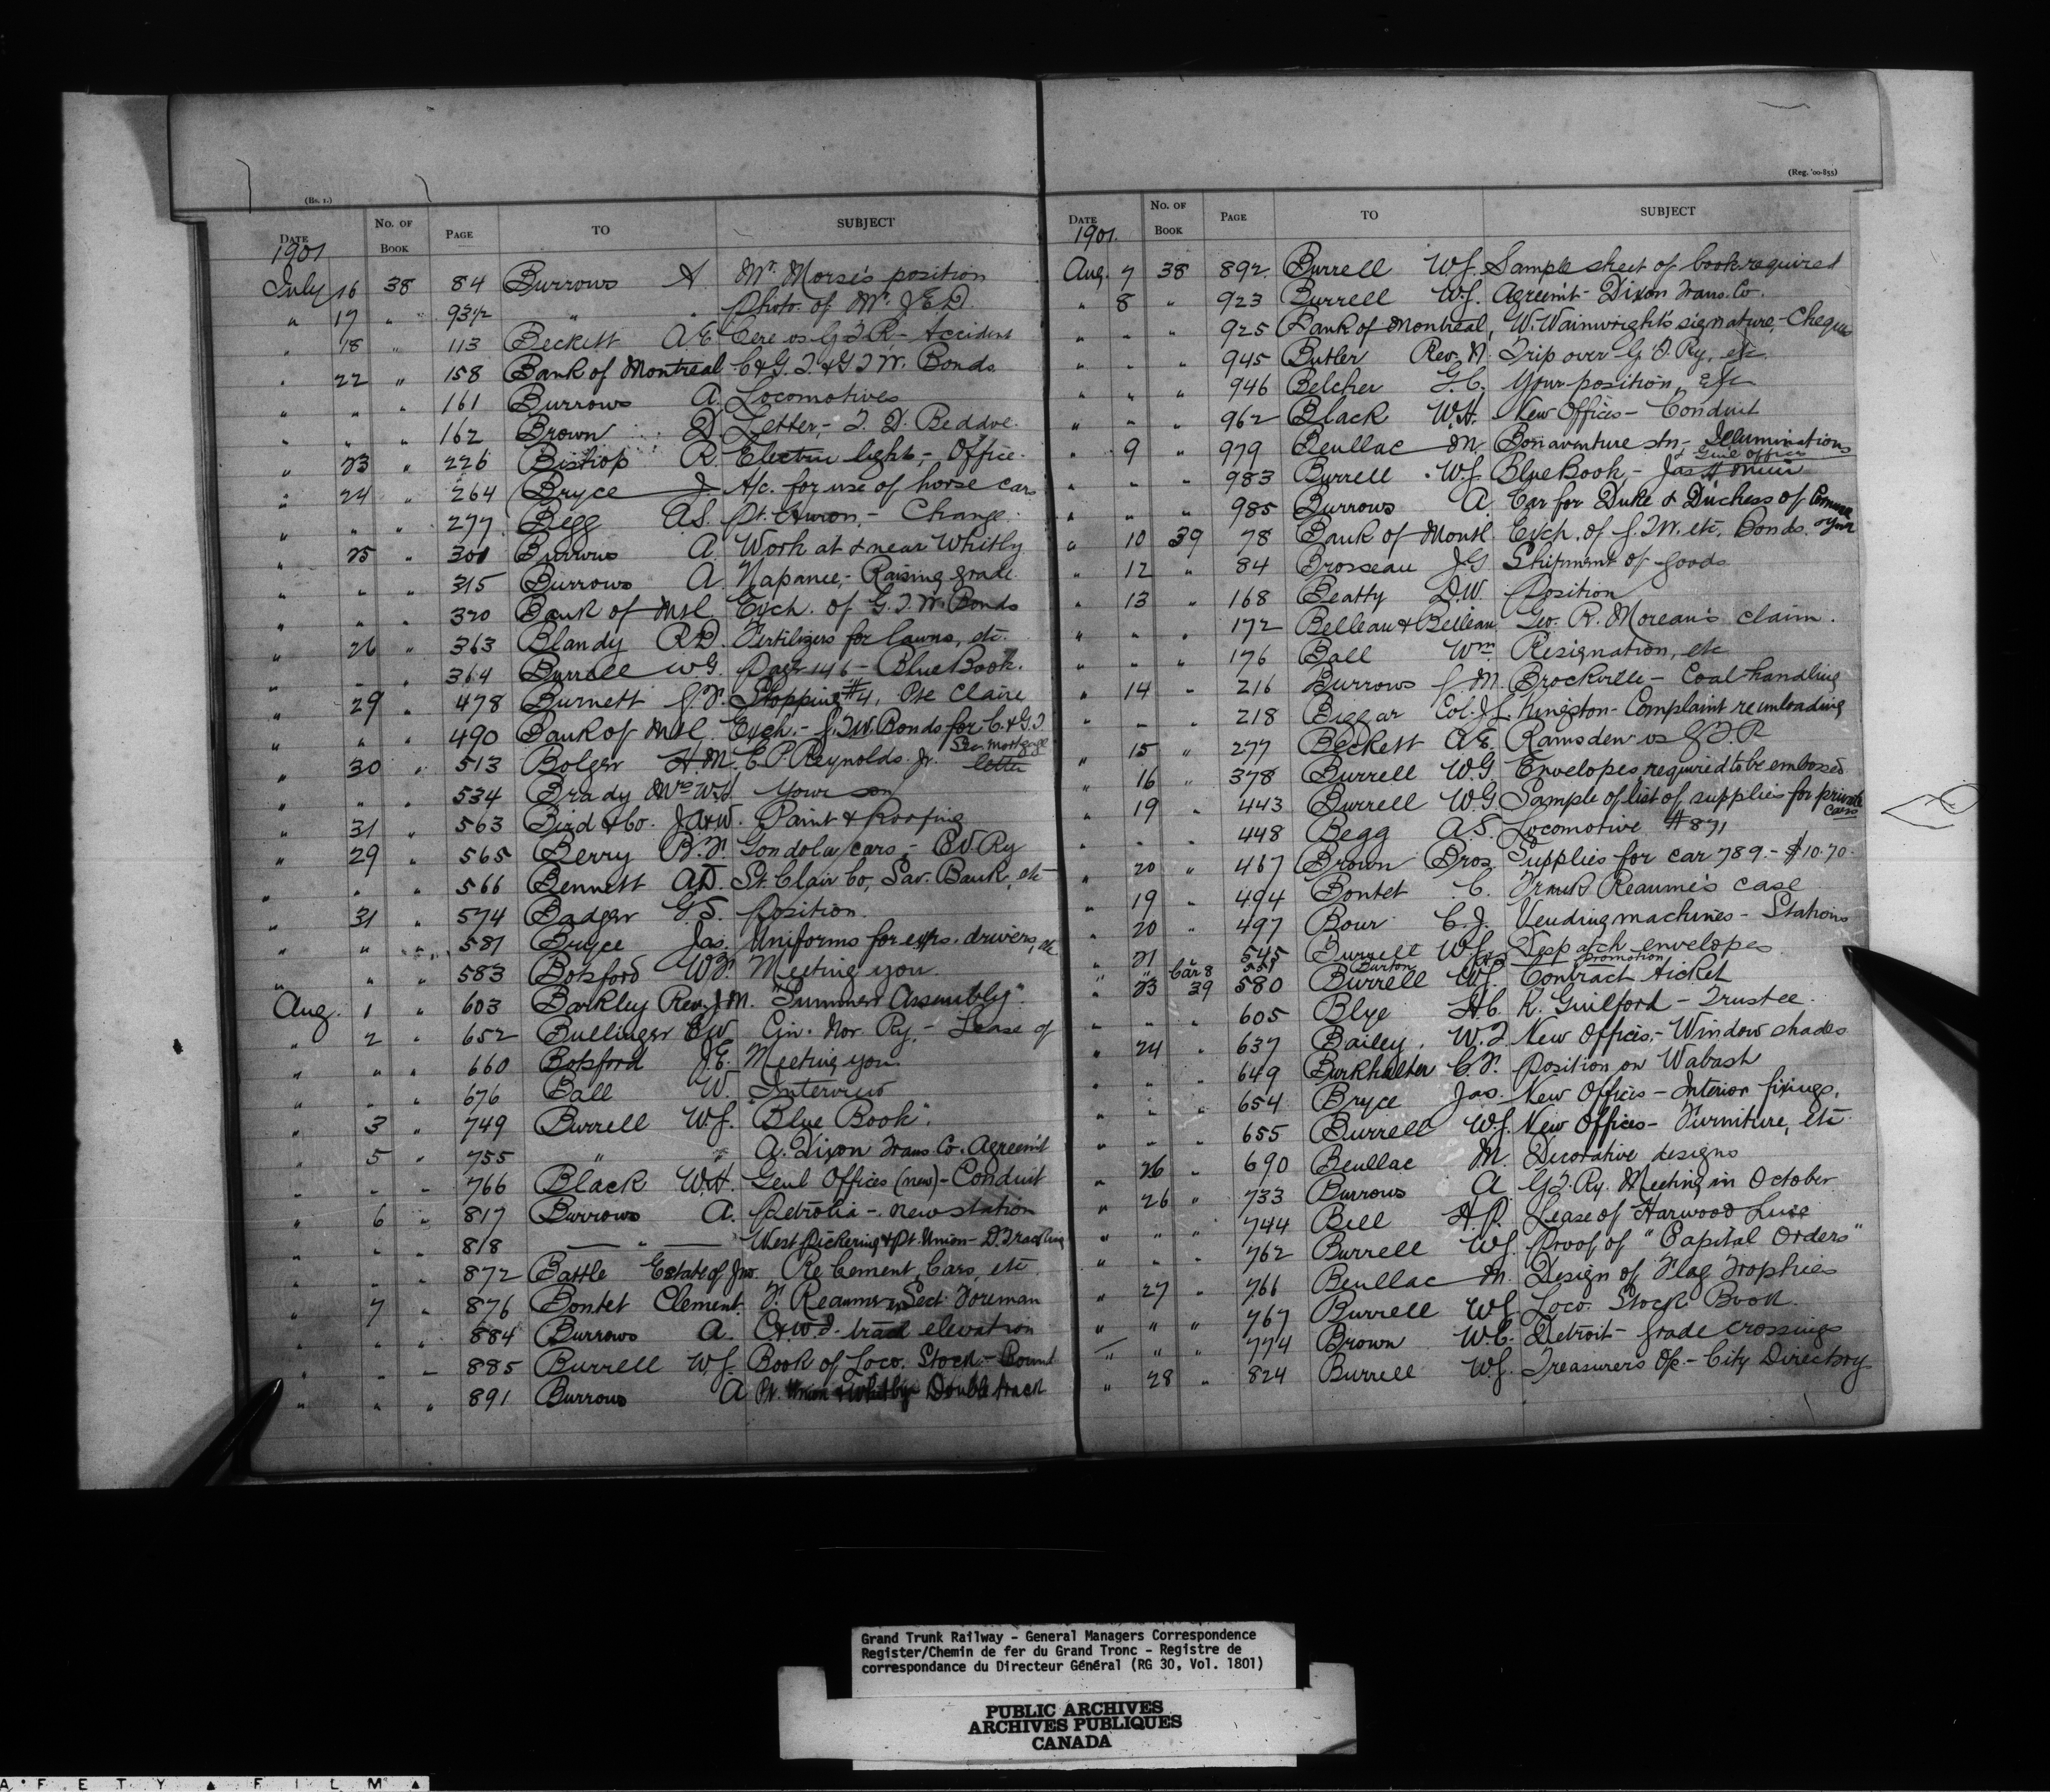 (Bo. 1.)
DATE No. OF BOOK PAGE TO SUBJECT
1901
July 16 38 84 Burrows A. Mr. Morse's position
" 17 " 93½ " " Photo. of Mr. J.E.D.
" 18 " 113 Beckett A E vs G.T.R - Accident
" 22 " 158 Bank of Montreal C & G.T. & G.T.W. Bonds
" " " 161 Burrows A. Locomotives
" " " 162 Brown D. Letter, - T. D. Beddoe.
" 23 " 226 Bishop R. Electric light, - Office.
" 24 " 264 Bryce J. A/c. for use of horse cars
" " " 277 Begg A.S. Pt. Huron, - Change.
" 25 " 301 Burrows A. Work at & near Whitby
" " " 315 Burrows A. Napanee, - Raising grade.
" " " 320 Bank of Mtl. Exch. of G.T.W. Bonds
" 26 " 363 Blandy R.D. Fertilizers for lawns, etc.
" " " 364 Burrell W.G. Page 146 - Blue Book.
" 29 " 478 Burnett Stopping #4, Pte Claire
" " " 490 Bank of Mtl. Exch. - G.T.W. Bonds for C. & G.T Sec. Mortgage
" 30 " 513 Bolger H.M. C. P. Reynolds. Jr. letter
" " " 534 Brady Mrs W.H. Your son
" 31 " 563 Bird & Co. J A & W. Paint & Roofing
" 29 " 565 Berry B.F. Gondola cars, - C V. Ry
" " " 566 Bennett A.D. St. Clair Co, Sav. Bank, etc
" 31 " 574 Badger G S. Position.
" " " 581 Bryce Jas. Uniforms for exps. drivers, etc
" " " 583 Botsford W F. Meeting you.
Aug. 1 " 603 Barkley Rev. J.M. "Summer Assembly".
" 2 " 652 Bullinger E W. Cin. Nor. Ry. - Lease of
" " " 660 Botsford J.E. Meeting you.
" " " 676 Ball W. Interview
" 3 " 749 Burrell W.J. "Blue Book".
" 5 " 755 " " A. Dixon Trans. Co. Agreem't
" " " 766 Black W.H. Genl Offices (new) - Conduit
" 6 " 817 Burrows A. Petrolia - new station
" " " 818 " West Pickering & Pt. Union - D. Tracking
" " " 872 Battle Estate of Jno. Re Cement Cars, etc
" 7 " 876 Bontet Clement. F. Reaume Sect. Foreman
" " " 884 Burrows A. track elevation
" " " 885 Burrell W.J. Book of Loco. Stock - Bound
" " " 891 Burrows A Pt. Union & Whitby Double track
(Reg. '00-855)
DATE No. OF BOOK PAGE TO SUBJECT
1901.
Aug. 7 38 892 Burrell W.J. Sample sheet of book required
" 8 " 923 Burrell W.J. Agreem't - Dixon Trans. Co.
" " " 925 Bank of Montreal, W. Wainwright's signature, - Cheques
" " " 945 Butler Rev. N. Trip over G. T. Ry. etc.
" " " 946 Belcher G.C. Your position, etc
" " " 962 Black W.H. New Offices - Conduit
" 9 " 979 Beullac M. Bonaventure stn - & Genl offices Illuminations
" " " 983 Burrell W.J. Blue Book, - Jas H Muir
" " " 985 Burrows A. Car for Duke & Duchess of Cornwall & York
" 10 39 78 Bank of Montl. Exch. of G.T.W. etc. Bonds.
" 12 " 84 Brosseau J G Shipment of goods
" 13 " 168 Beatty D.W. Position
" " " 172 Belleau & Belleau Geo. R. Moreau's claim.
" " " 176 Ball Wm. Resignation, etc
" 14 " 216 Burrows J.M. Brockville - Coal handling
" " " 218 Biggar Col. J.L. Kingston - Complaint re unloading
" 15 " 277 Beckett A.E. Ramsden vs G.T.R
" 16 " 378 Burrell W.G. Envelopes required to be embossed
" 19 " 443 Burrell W.G. Sample of list of supplies for private cars
" " " 448 Begg A.S. Locomotive #871
" 20 " 467 Brown Bros. Supplies for car 789. - $10.70.
" 19 " 494 Bontet C. Frank Reaume's case
" 20 " 497 Bour C.J. Vending machines - Stations
" 21 " 545 Burrell W.J. Despatch envelopes
" " Car 8 551 Burton promotion
" 23 39 580 Burrell W.J. Contract ticket
" " " 605 Blye H.C. R. Guilford - Trustee.
" 24 " 637 Bailey. W.T. New Offices, - Window shades
" " " 649 Burkhalter C.F. Position on Wabash
" " " 654 Bryce Jas. New Offices - Interior fixings.
" " " 655 Burrell W.J. New Offices - Furniture, etc
" 26 " 690 Beullac M. Decorative designs
" 26 " 733 Burrows A. G.T. Ry. Meeting in October
" " " 744 Bell H.P. Lease of Harwood Line
" " " 762 Burrell W.J. Proof of "Capital Orders"
" 27 " 766 Beullac M. Design of Flag Trophies
" " " 767 Burrell W.J. Loco. Stock Book.
" " " 774 Brown W.C. Detroit - grade crossings
" 28 " 824 Burrell W.J. Treasurer's Of. - City Directory
Grand Trunk Railway - General Managers Correspondence
Register/Chemin de fer du Grand Tronc - Registre de
correspondance du Directeur Général (RG 30, Vol. 1801)
PUBLIC ARCHIVES
ARCHIVES PUBLIQUES
CANADA
AFETY ▲ FILM ▲